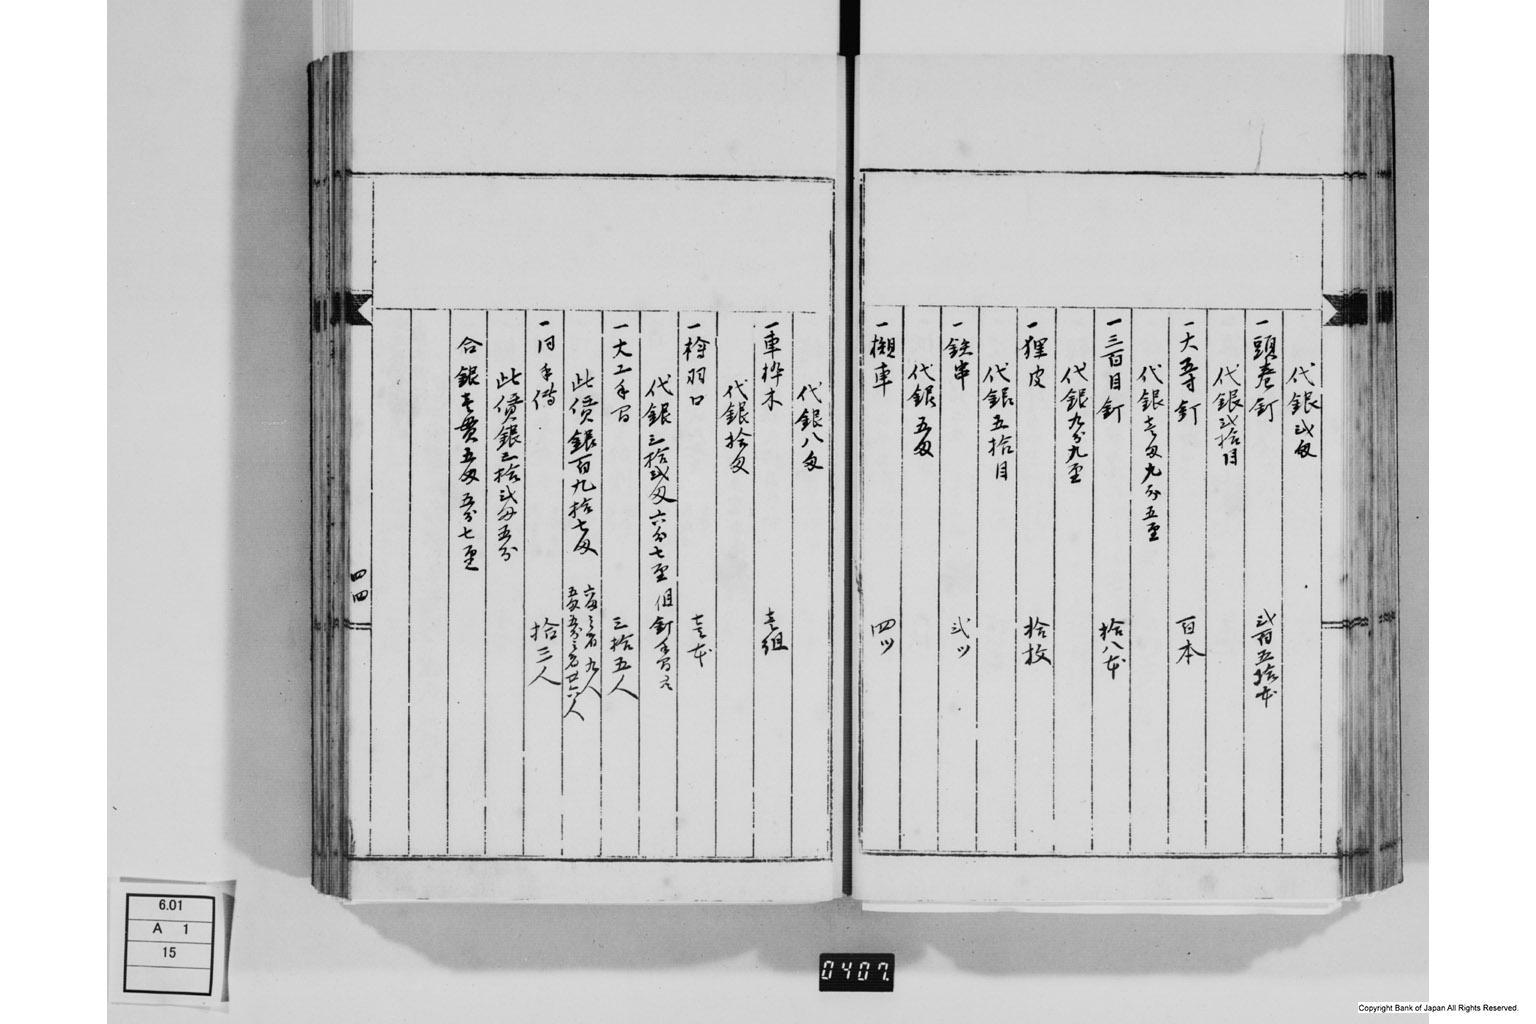 代銀弐匁
一頭巻釘 弐百五拾本
代銀弐拾目
一大五寸釘 百本
代銀壱匁九分五厘
一三百目釘 拾八本
代銀九分九厘
一狸皮 拾枚
代銀五拾目
一鉄串 弐ツ
代銀五匁
一櫴車 四ツ
代銀八匁
一車枠木 壱組
代銀拾匁
一檜羽口 壱本
代銀三拾弐匁六分七厘 但釘手間共
一大工手間 三拾五人
此賃銀百九拾七匁 六匁ツヽ者九人
五匁五分ツヽ者廿六人
一同手伝 拾三人
此賃銀三拾弐匁五分
合銀壱貫五匁五分七厘
四四
6.01
A 1
15
0407
Copyright Bank of Japan All Rights Reserved.